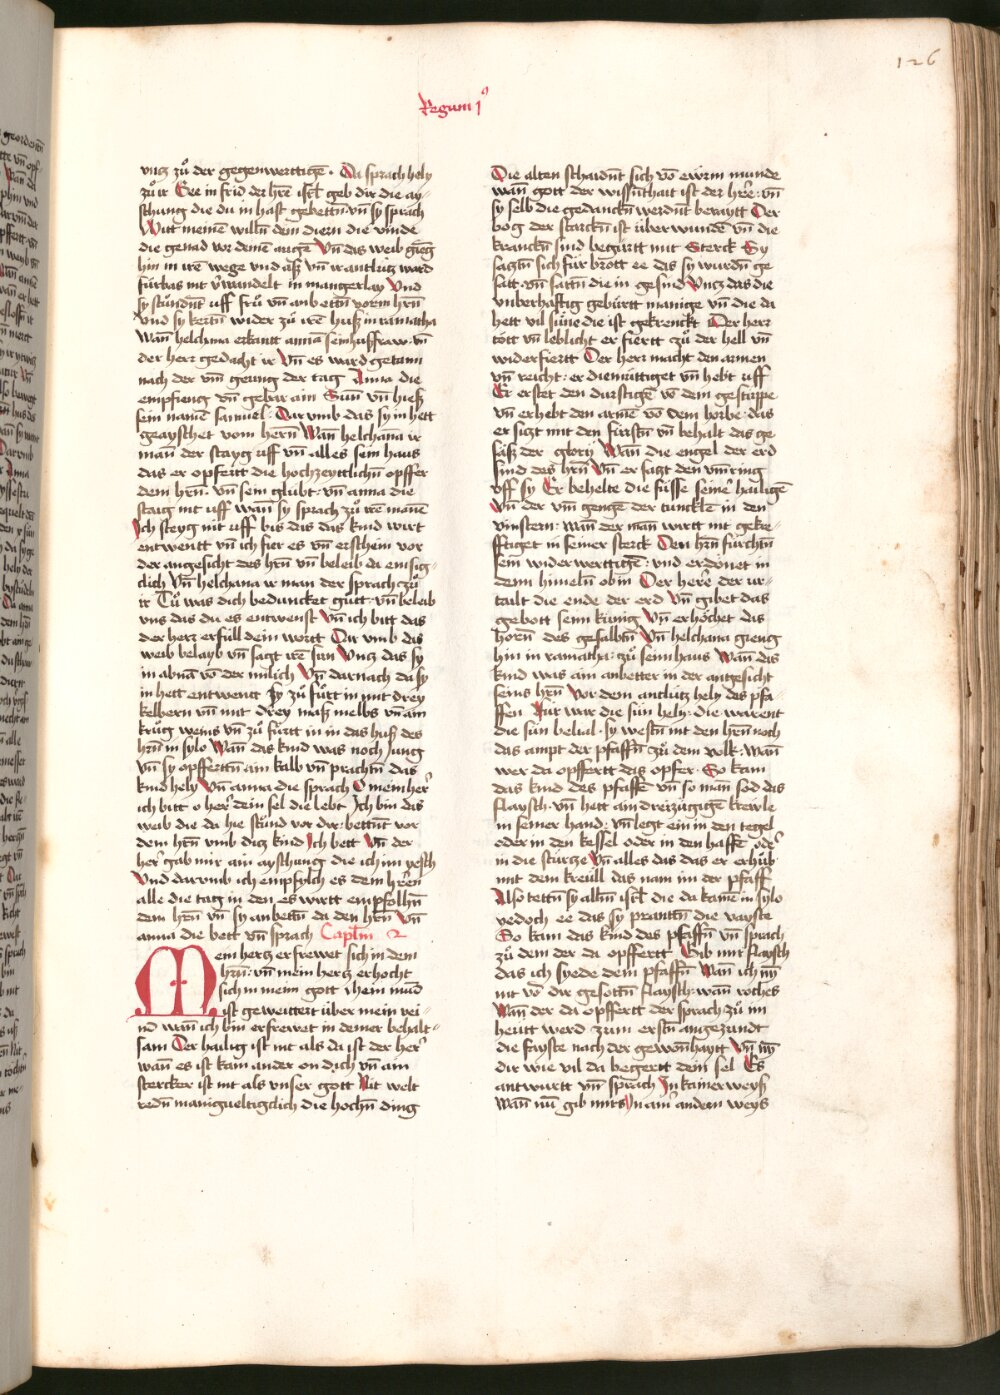 126
Regum 1º
vncz zů der gegenwertige̅ · Da sprach hely
zů ir Gee in frid der h're isr̅l geb dir die ay-
schung die du in hast gebette̅n · vn̅ sy sprach
Witt meine̅ willn̅ dein diern die vinde
die genad vor deine̅ auge̅ Vn̅ das weib gieng
hin in ire̅ wege vnd aß vn̅ ir antlütz ward
fürbas nit v'wandelt in mangerlay Vnd
sy stůndn̅t uff frů vn̅ anbettn̅ vorm hrn̅
Vnd sy kertn̅ wider zů ire̅ huß in ramatha
Wan̅ helchana erkantt anna sein hußfraw · vn̅
der herr gedacht ir Vn̅ es ward getann
nach der vm̅ geung der tag Anna die
empfieng vn̅ gebar ain Sun̅ vn̅ hieß
sein name̅ samuel : Dar vmb das sy in hett
geayschet vom hern̅ Wan̅ helchana ir
man̅ der stayg uff vn̅ alles sein haus
das er opfertt die hochzeyttlichn̅ opffer
dem hrn̅ · vn̅ sein glübt · vn̅ anna die
staig nit uff wan̅ sy sprach zů ire̅ mane̅
Ich steyg nit uff bis das das kind wirt
entwentt vn̅ ich fier es vn̅ erschein vor
der angesicht des hrn̅ vn̅ beleib da emssig-
clich Vn̅ helchana ir man der sprach zů
ir Tů was dich beduncket gůtt · vn̅ beleib
vns das du es entwenst Vn̅ ich bitt das
der herr erfüll dein wortt Dar vmb das
weib belayb vn̅ sagt ire̅ sun Vncz das sy
in abna̅ vo̅ der milich Vn̅ darnach da sy
in hett entwentt Sy zů fůrt in mit drey
kelbern vn̅ mit drey maß melbs vn̅ am
krůg weins vn̅ zů fůrtt in in das huß des
hrn̅ in sylo Wan̅ das kind was noch Jung
Vn̅ sy opffertn̅ ain kalb vn̅ prachtn̅ das
kind hely Vn̅ anna die sprach O mein her'
ich bitt o her' dein sel die lebt Ich bin das
weib die da hie stůnd vor dir · bettn̅t vor
dem hrn̅ vmb ditz kind Ich bett Vn̅ der
her' gab mir ain ayschung die ich im yesch
Vnd darvmb ich empfylch es dem h'ren
alle die tag in den es wirtt empfolhn̅
dem hrn̅ vn̅ sy anbettn̅ da den hrn̅ Vn̅
anna die bett vn̅ sprach Capl̅m 2
Mein hercz erfrewet sich in dem
hrn̅ : vn̅ mein hercz erhocht
sich in mein gott mein mud
ist geweittert über mein vei-
nd wan̅ ich bin erfrewet in deiner behalt-
sam Der hailig ist nit als da ist der her'
wan̅ es ist kain ander on dich vn̅ am
stercker ist nit als vnser gott Nit welt
redn̅ manigueltigclich die hochn̅ ding
Die alten schaidn̅t sich vo̅ ewrm munde
wan̅ gott der wissn̅thait ist der h're : vn̅
sy selb die gedanckn̅ werdn̅t beraytt Der
bog der starckn̅ ist über wunde̅ vn̅ die
kranckn̅ sind begürtt mit Sterck Sy
saztn̅ sich für brott ee das sy wurdn̅ ge
satt vn̅ sattn̅ die in gesind Vncz das die
vnberhafftig gebürtt manige vn̅ die da
hett vil süne̅ die ist gekrenckt Der herr
tött vn̅ leblicht er fiertt zů der hell vn̅
widerfiertt Der herr macht den armen
vn̅ reicht : er diemüttiget vn̅ hebt uff
Er erstet den durstige̅ vo̅ dem gestüppe
vn̅ erhebt den arme̅ vo̅ dem horbe · das
er sizt mit den fürstn̅ vn̅ behalt das ge
säß der glory Wan̅ die engel der erd
sind des hrn̅ Vn̅ er sazt den vm̅ring
vff sy Er behelte die füsse seine' hailige̅
Vn̅ der vm̅ genge der tunckle̅ in den
vinstern : wan̅ der man wirtt nit geke-
fftiget in seiner sterck Den hrn̅ fürchtn̅
sein widerwerttige̅ : vnd erdonet in
denn himeln̅ ob in Der here' der ur-
tailt die ende der erd Vn̅ gibet das
gebott seim künig Vn̅ erhöchet das
horn̅ des gesalbtn̅ Vn̅ helchana gieng
hin in ramatha : zů seim haus Wan̅ das
kind was ain anbetter in der antgesicht
seins hrn̅ Vor dem antlütz hely des pfa-
ffen Für war die sün hely : die warent
die sün belial · sy westn̅ nit den hrn̅ noch
das ampt der pfaffn̅ zů dem volk : Wan̅
wer da opffertt das opfer · So kam
das kind des pfaffe̅ vn̅ so man̅ sod das
flaysch · vn̅ hett ain dreizügige̅ krewle
in seiner hand : vn̅ legt ein in den tegel
oder in den kessel oder in den haffe̅ ode'
in die stürcze Vn̅ alles das das er erhůb
mit dem kreüll das nam im der pfaff
Also tettn̅ sy allin̅ isr̅l die da kame̅ in sylo
yedoch ee das sy prantn̅ die vayste
So kam das kind des pfaffn̅ vn̅ sprach
zů dem der da opffertt Gib mir flaysch
das ich syede dem pfaffn̅ Wan̅ ich ny̅
nit vo̅ dir gesottn̅ flaysch : wan̅ rochs
Wan̅ der da opffertt der sprach zů im
heütt werd zum erstn̅ angezundt
die fayste nach der gewon̅haytt Vn̅ ny̅
dir wie vil da begertt dein sel Es
antwurtt vn̅ sprach In kainerweyß
Wan̅ nu̅ gib mirs In ain' andern weys